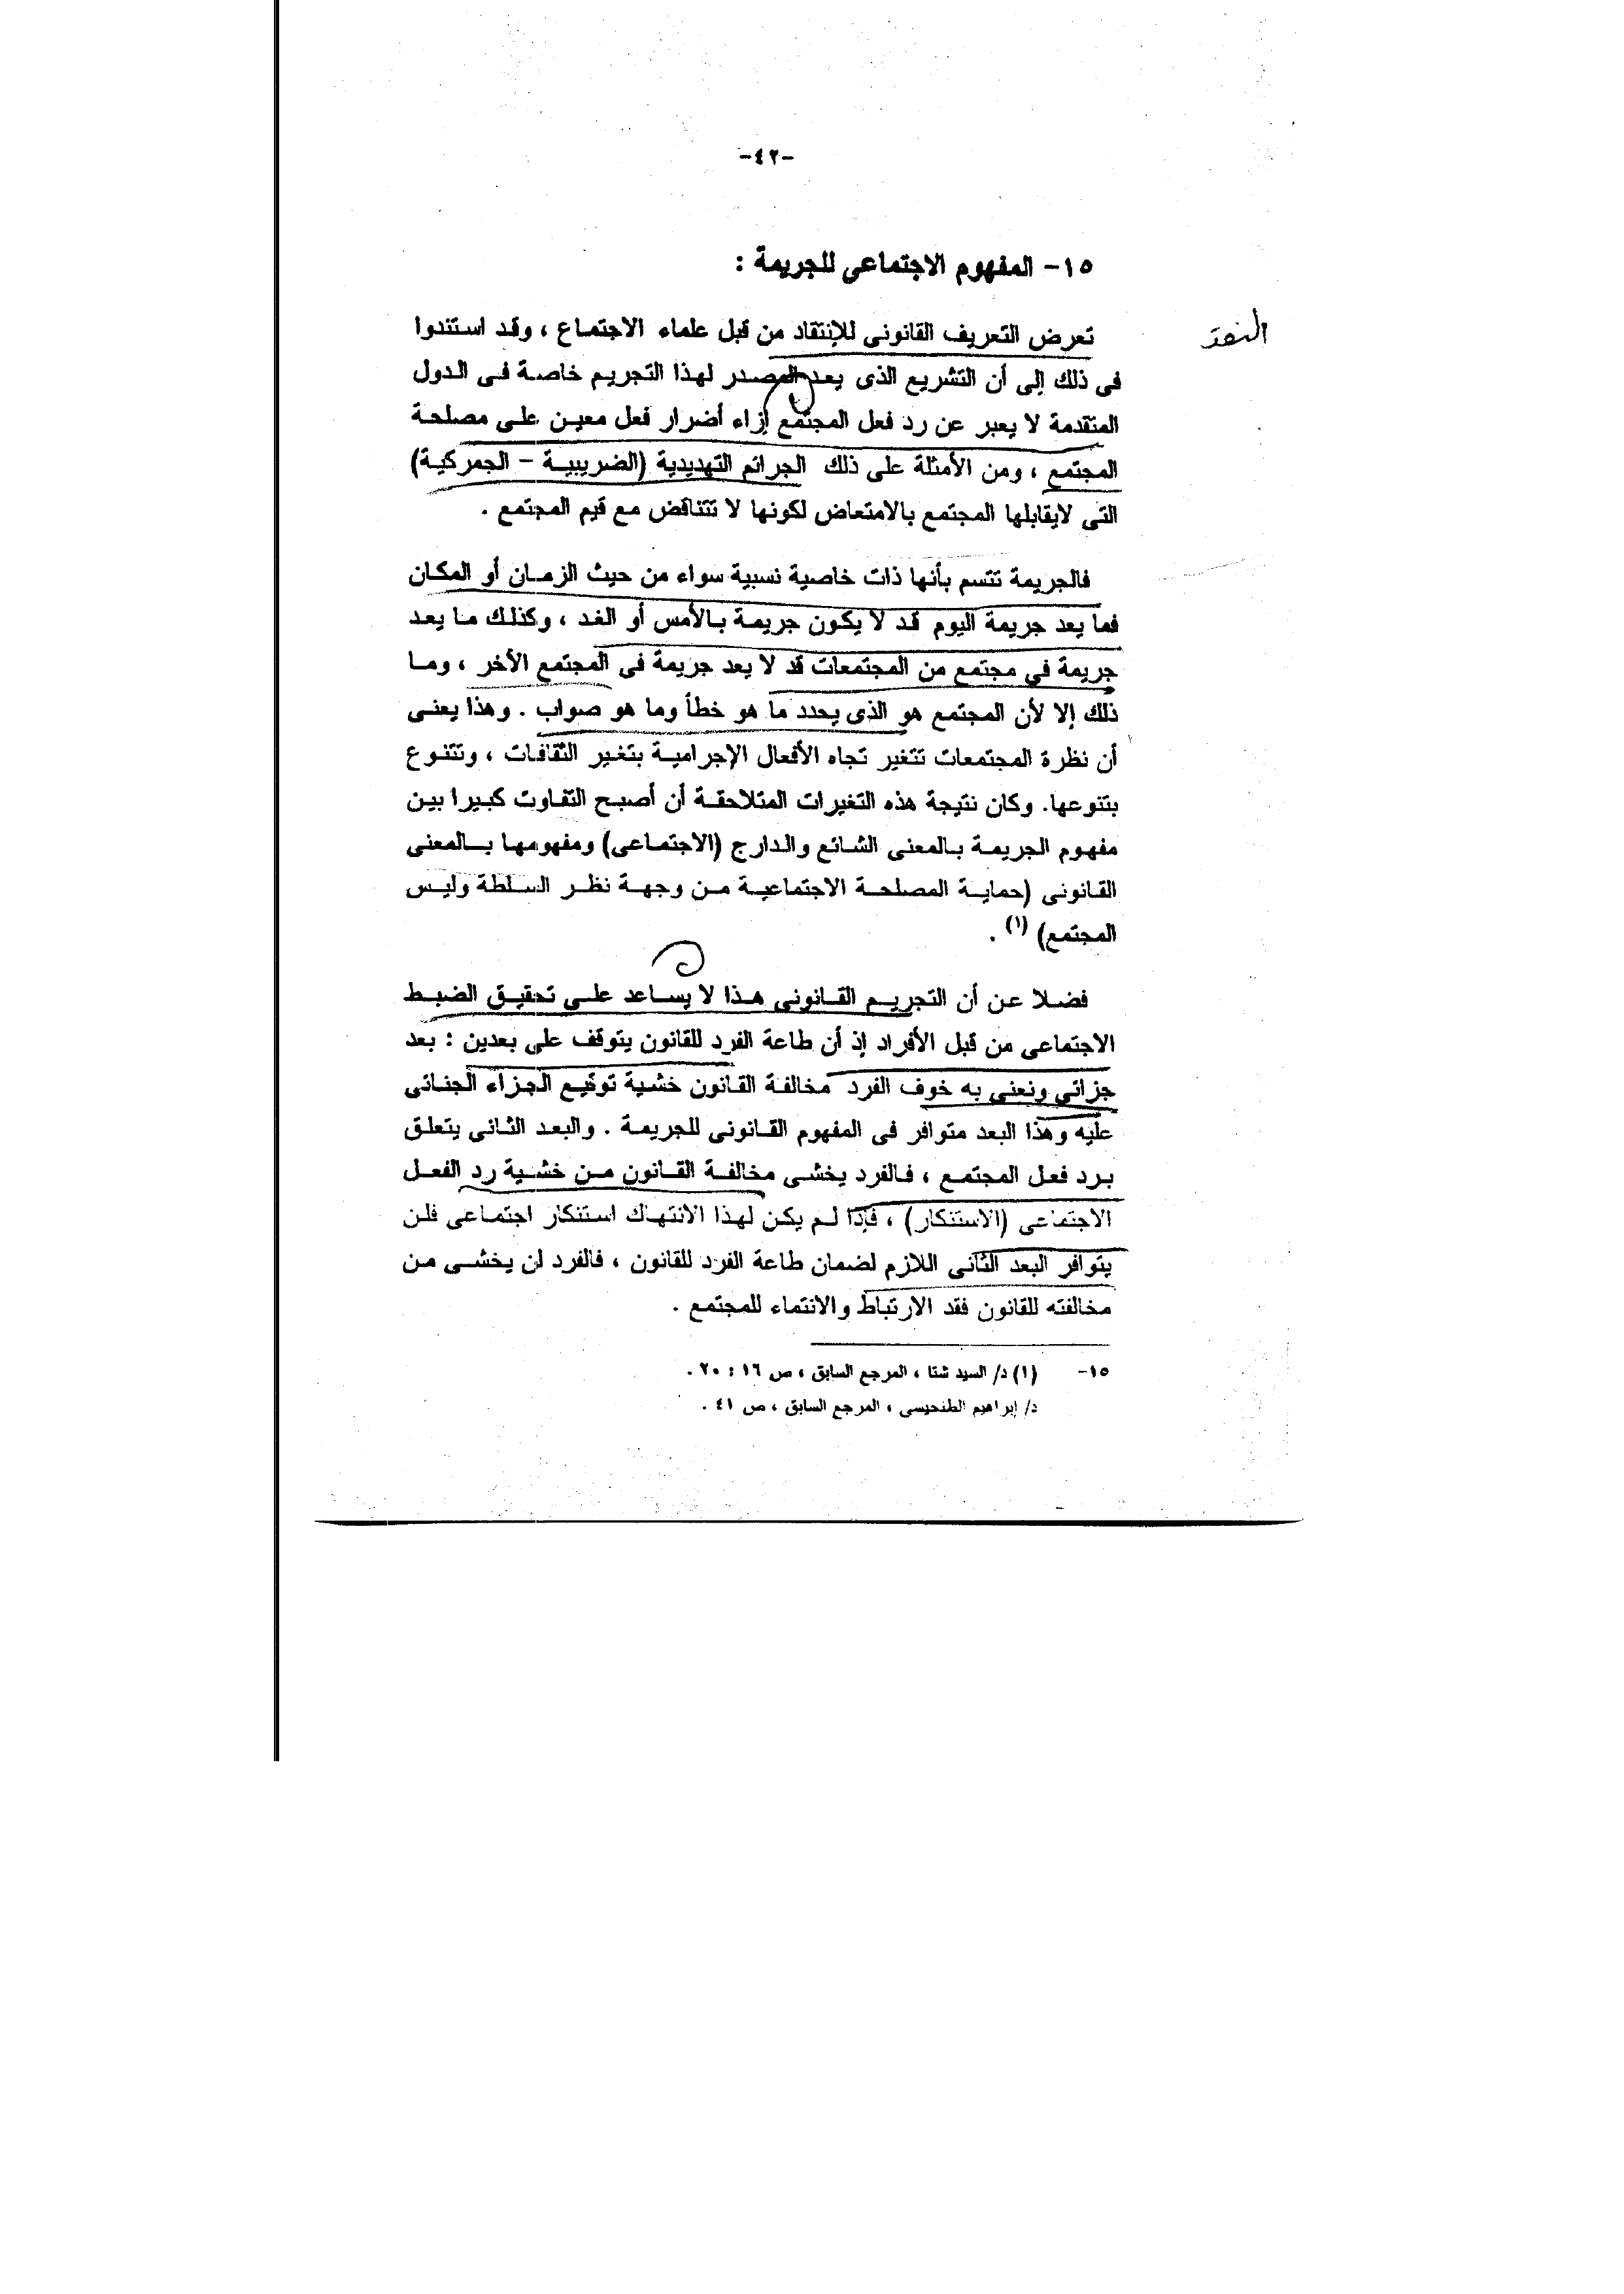 -٤٢-
١٥- المفهوم الاجتماعى للجريمة :
النقد
تعرض التعريف القانونى للإنتقاد من قبل علماء الاجتماع ، وقد استندوا
فى ذلك إلى أن التشريع الذى يعد المصدر لهذا التجريم خاصة فى الدول
المتقدمة لا يعبر عن رد فعل المجتمع إزاء أضرار فعل معين على مصلحة
المجتمع ، ومن الأمثلة على ذلك الجرائم التهديدية (الضريبية - الجمركية)
التى لايقابلها المجتمع بالامتعاض لكونها لا تتناقض مع قيم المجتمع .
فالجريمة تتسم بأنها ذات خاصية نسبية سواء من حيث الزمان أو المكان
فما يعد جريمة اليوم قد لا يكون جريمة بالأمس أو الغد ، وكذلك ما يعد
جريمة فى مجتمع من المجتمعات قد لا يعد جريمة فى المجتمع الأخر ، وما
ذلك إلا لأن المجتمع هو الذى يحدد ما هو خطأ وما هو صواب . وهذا يعنى
أن نظرة المجتمعات تتغير تجاه الأفعال الإجرامية بتغير الثقافات ، وتتنوع
بتنوعها. وكان نتيجة هذه التغيرات المتلاحقة أن أصبح التفاوت كبيرا بين
مفهوم الجريمة بالمعنى الشائع والدارج (الاجتماعى) ومفهومها بالمعنى
القانونى (حماية المصلحة الاجتماعية من وجهة نظر السلطة وليس
المجتمع) (١) .
فضلا عن أن التجريم القانونى هذا لا يساعد على تحقيق الضبط
الاجتماعى من قبل الأفراد إذ أن طاعة الفرد للقانون يتوقف على بعدين : بعد
جزائى ونعنى به خوف الفرد مخالفة القانون خشية توقيع الجزاء الجنائى
عليه وهذا البعد متوافر فى المفهوم القانونى للجريمة . والبعد الثانى يتعلق
برد فعل المجتمع ، فالفرد يخشى مخالفة القانون من خشية رد الفعل
الاجتماعى (الاستنكار) ، فإذا لم يكن لهذا الانتهاك استنكار اجتماعى فلن
يتوافر البعد الثانى اللازم لضمان طاعة الفرد للقانون ، فالفرد لن يخشى من
مخالفته للقانون فقد الارتباط والانتماء للمجتمع .
١٥- (١) د/ السيد شتا ، المرجع السابق ، ص ١٦ : ٢٠ .
د/ إبراهيم الطنحيسى ، المرجع السابق ، ص ٤١ .